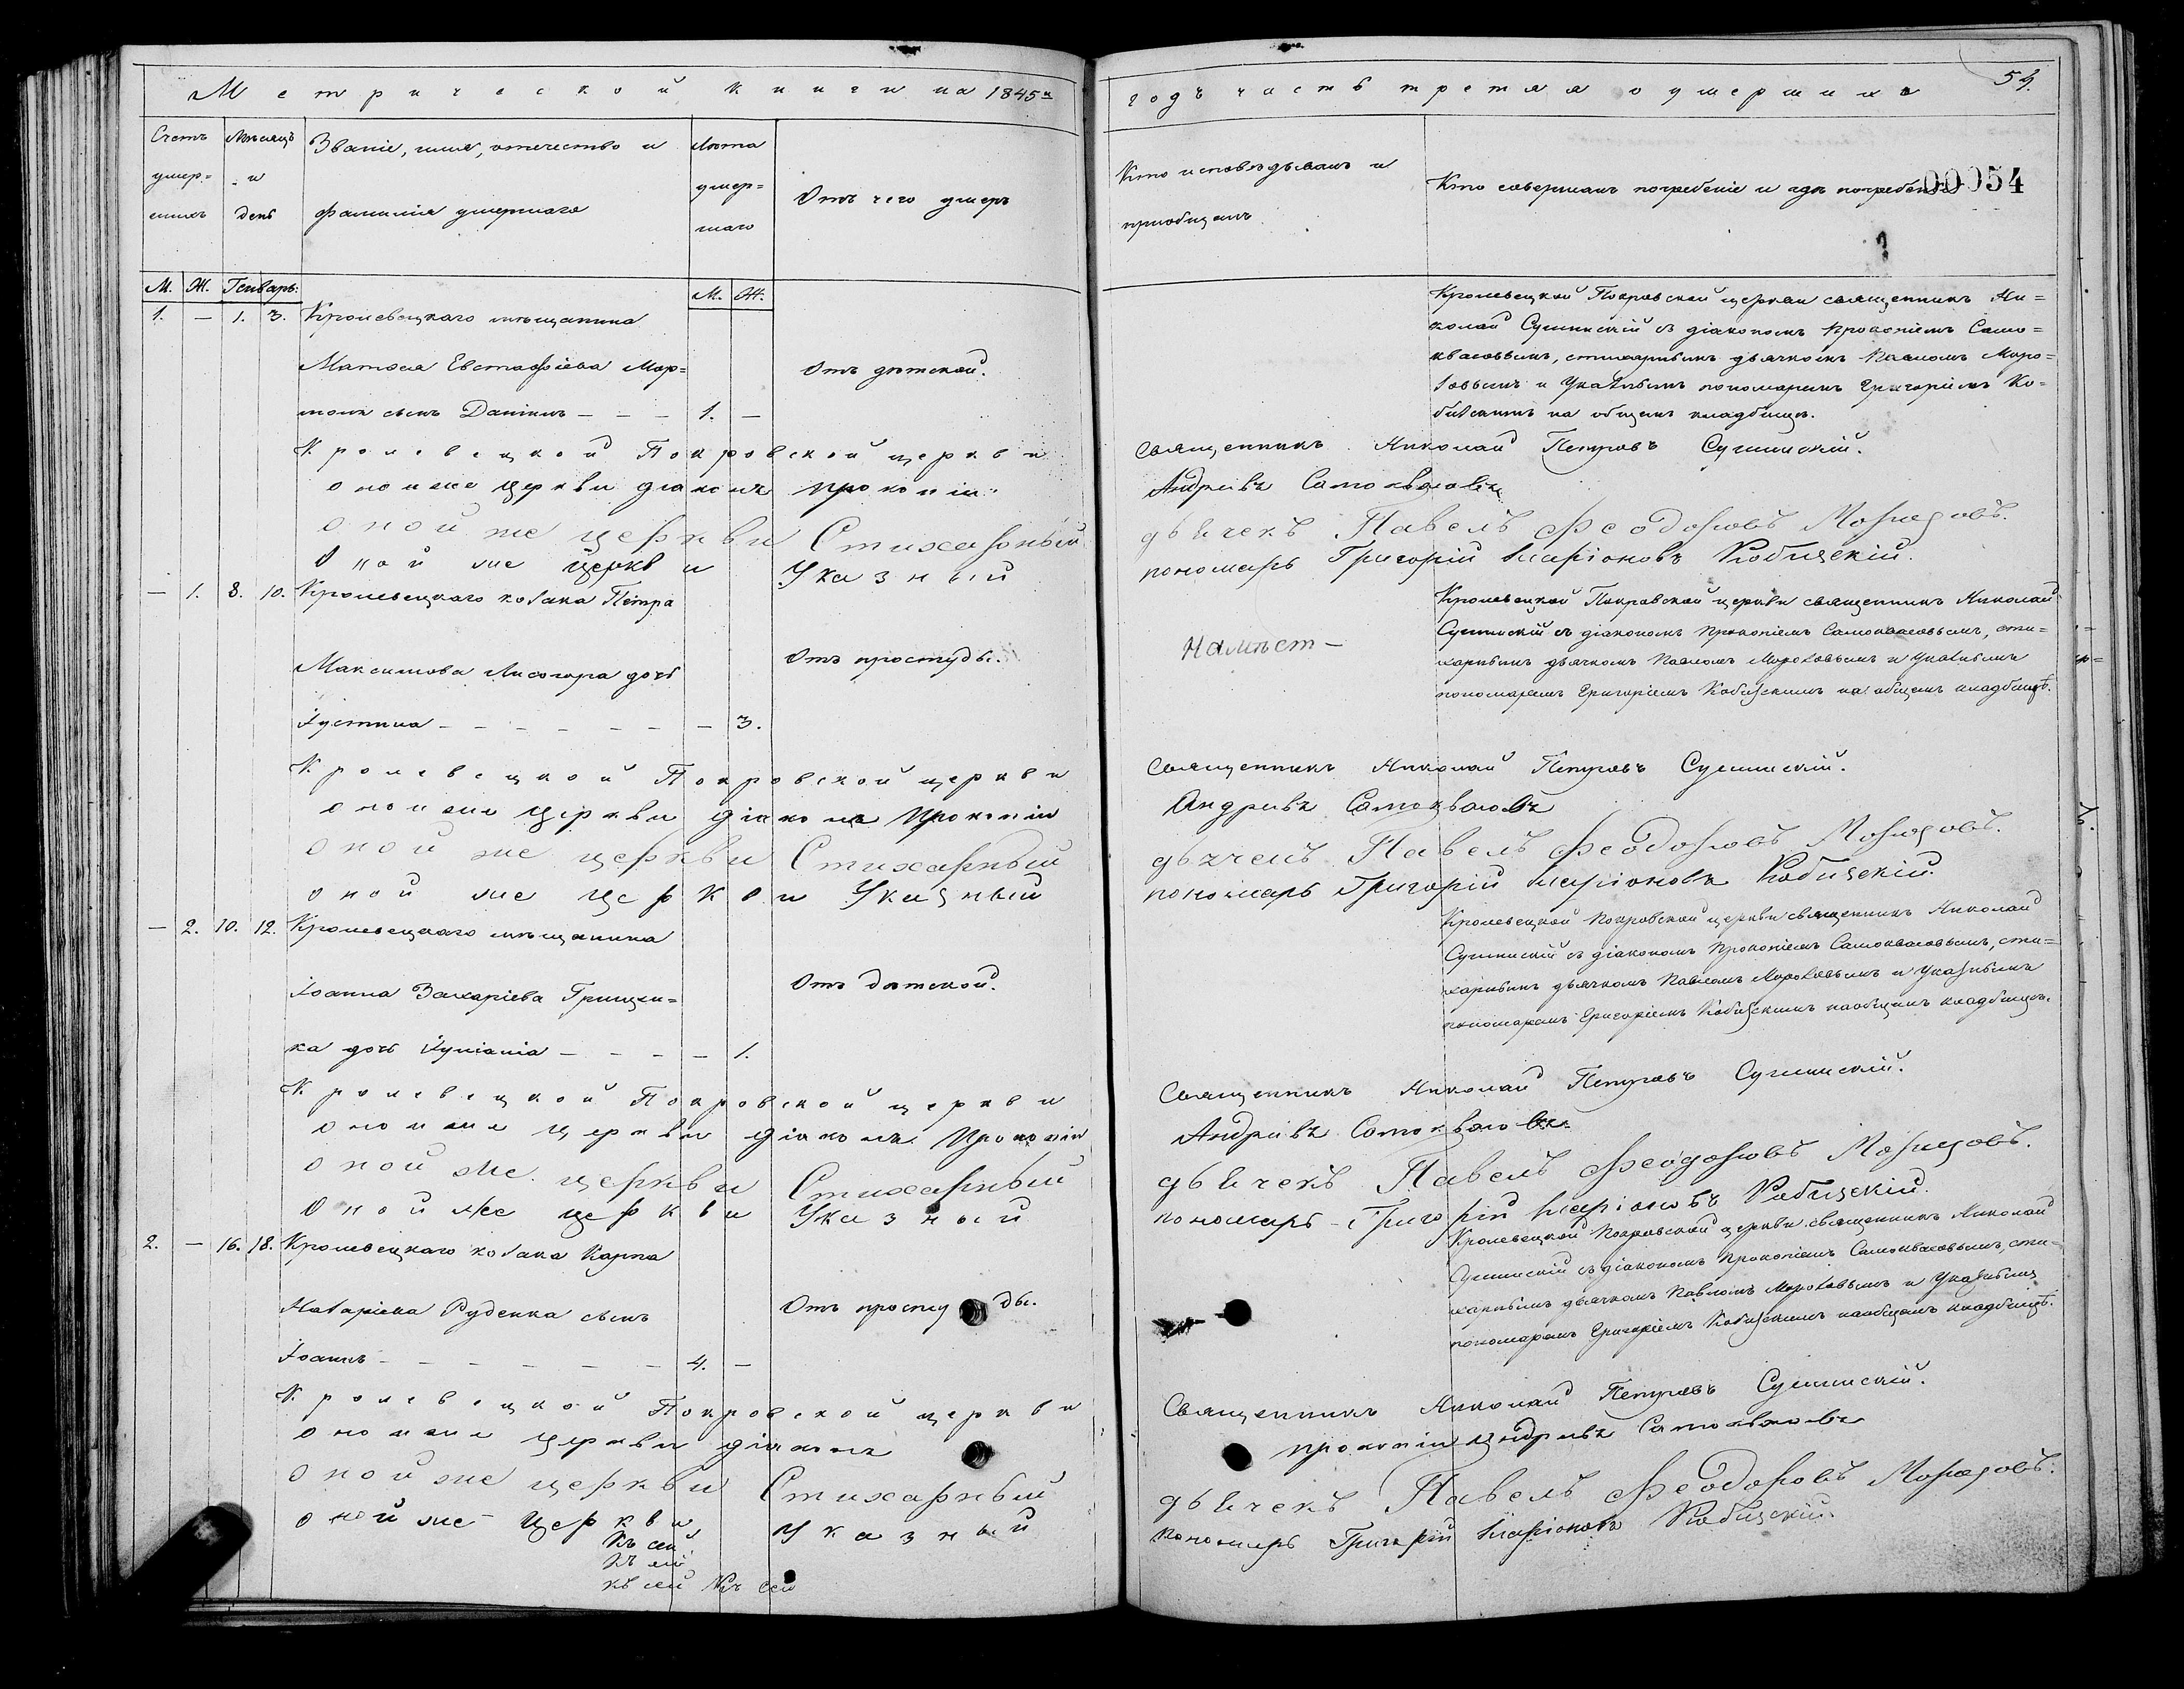 Метрической книги на 1845й
Счетъ умер=шихъ
Мѣсяцъ и день
Званіе, имя, отчество и
фамилія умершаго
Лѣта умер=шаго
Отъ чего умеръ
М. Ж. Генварь:
М. Ж.
1. — 1. 3. Кролевецкаго мѣщанина
Матвѣя Евстафіева Мор=
сынъ Даніилъ — — — 1. —
Отъ дѣтской.
Кролевецкой Покровской церкви
оной же церкви діаконъ Прокопій
оной же церкви Стихарный
Оной же церкви Указный
— 1. 8. 10. Кролевецкаго козака Петра
Максимова Лисогора дочь
Іустина — — — — — — — 3.
Отъ простуды.
Кролевецкой Покровской церкви
оной же церкви діаконъ Прокопій
оной же церкви Стихарный
оной же церкви Указный
— 2. 10. 12. Кролевецкаго мѣщанина
Іоанна Захаріева Грищен=
ка дочь Іуліанія — — — — — 1.
Отъ дѣтской.
Кролевецкой Покровской церкви
оной же церкви діаконъ Прокопій
оной же церкви Стихарный
Оной же церкви Указный
2. — 16. 18. Кролевецкаго козака Карпа
Назаріева Руденка сынъ
Іоаннъ — — — — — — 4. —
Отъ простуды.
Кролевецкой Покровской церкви
оной же церкви діаконъ
оной же церкви Стихарный
оной же церкви Указный
Къ сей
Къ сей
къ сей Къ сей
годъ часть третяя о умершихъ
54.
Кто исповѣдывалъ и
пріобщалъ
Кто совершалъ погребеніе и гдѣ погребены
00054
Кролевецкой Покровской церкви священникъ Ни=
колай Сушинскій съ діакономъ Прокопіемъ Само=
квасовымъ, стихарнымъ дьячкомъ Павломъ Моро=
зовымъ и Указнымъ пономаремъ Григоріемъ Ко=
бизскимъ на общемъ кладбищѣ.
Священникъ Николай Петровъ Сушинскій.
Андріевъ Самоквасовъ
дьячекъ Павелъ Феодоровъ Морозовъ.
пономарь Григорій Иларіоновъ Кобизскій.
Кролевецкой Покровской церкви священникъ Николай
Сушинскій съ діакономъ Прокопіемъ Самоквасовымъ, сти=
харнымъ дьячкомъ Павломъ Морозовымъ и Указнымъ
пономаремъ Григоріемъ Кобизскимъ на общемъ кладбищѣ.
Намѣст—
Священникъ Николай Петровъ Сушинскій.
Андріевъ Самоквасовъ
дьячекъ Павелъ Феодоровъ Морозовъ.
пономарь Григорій Иларіоновъ Кобизскій.
Кролевецкой Покровской церкви священникъ Николай
Сушинскій съ діакономъ Прокопіемъ Самоквасовымъ, сти=
харнымъ дьячкомъ Павломъ Морозовымъ и Указнымъ
пономаремъ Григоріемъ Кобизскимъ на общемъ кладбищѣ.
Священникъ Николай Петровъ Сушинскій.
Андріевъ Самоквасовъ
дьячекъ Павелъ Феодоровъ Морозовъ.
пономарь Григорій Иларіоновъ Кобизскій.
Кролевецкой Покровской церкви священникъ Николай
Сушинскій съ діакономъ Прокопіемъ Самоквасовымъ, сти=
харнымъ дьячкомъ Павломъ Морозовымъ и Указнымъ
пономаремъ Григоріемъ Кобизскимъ на общемъ кладбищѣ.
Священникъ Николай Петровъ Сушинскій.
Прокопій Андріевъ Самоквасовъ
дьячекъ Павелъ Феодоровъ Морозовъ.
пономарь Григорій Иларіоновъ Кобизскій